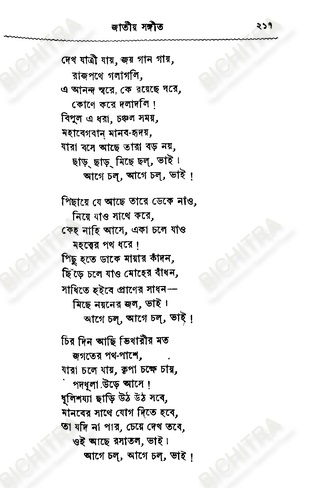 জাতীয় সঙ্গীত ২১৭
দেখ যাত্রী যায়, জয় গান গায়,
রাজপথে গলাগলি,
এ আনন্দ স্বরে, কে রয়েছে ঘরে,
কোণে করে দলাদলি !
বিপুল এ ধরা, চঞ্চল সময়,
মহাবেগবান্ মানব-হৃদয়,
যারা বসে আছে তারা বড় নয়,
ছাড়্ ছাড়্ মিছে ছল্, ভাই !
আগে চল্, আগে চল্, ভাই !
পিছায়ে যে আছে তারে ডেকে নাও,
নিয়ে যাও সাথে করে,
কেহ নাহি আসে, একা চলে যাও
মহত্বের পথ ধরে !
পিছু হতে ডাকে মায়ার কাঁদন,
ছিঁড়ে চলে যাও মোহের বাঁধন,
সাধিতে হইবে প্রাণের সাধন—
মিছে নয়নের জল, ভাই !
আগে চল্, আগে চল্, ভাই !
চির দিন আছি ভিখারীর মত
জগতের পথ-পাশে,
যারা চলে যায়, কৃপা চক্ষে চায়,
পদধূলা উড়ে আসে !
ধূলিশয্যা ছাড়ি উঠ উঠ সবে,
মানবের সাথে যোগ দিতে হবে,
তা যদি না পার, চেয়ে দেখ তবে,
ওই আছে রসাতল, ভাই !
আগে চল্, আগে চল্, ভাই !
BICHITRA